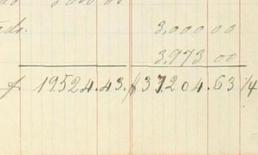 3,000 00
3,973 00
19524.43. $37204.63 1/4